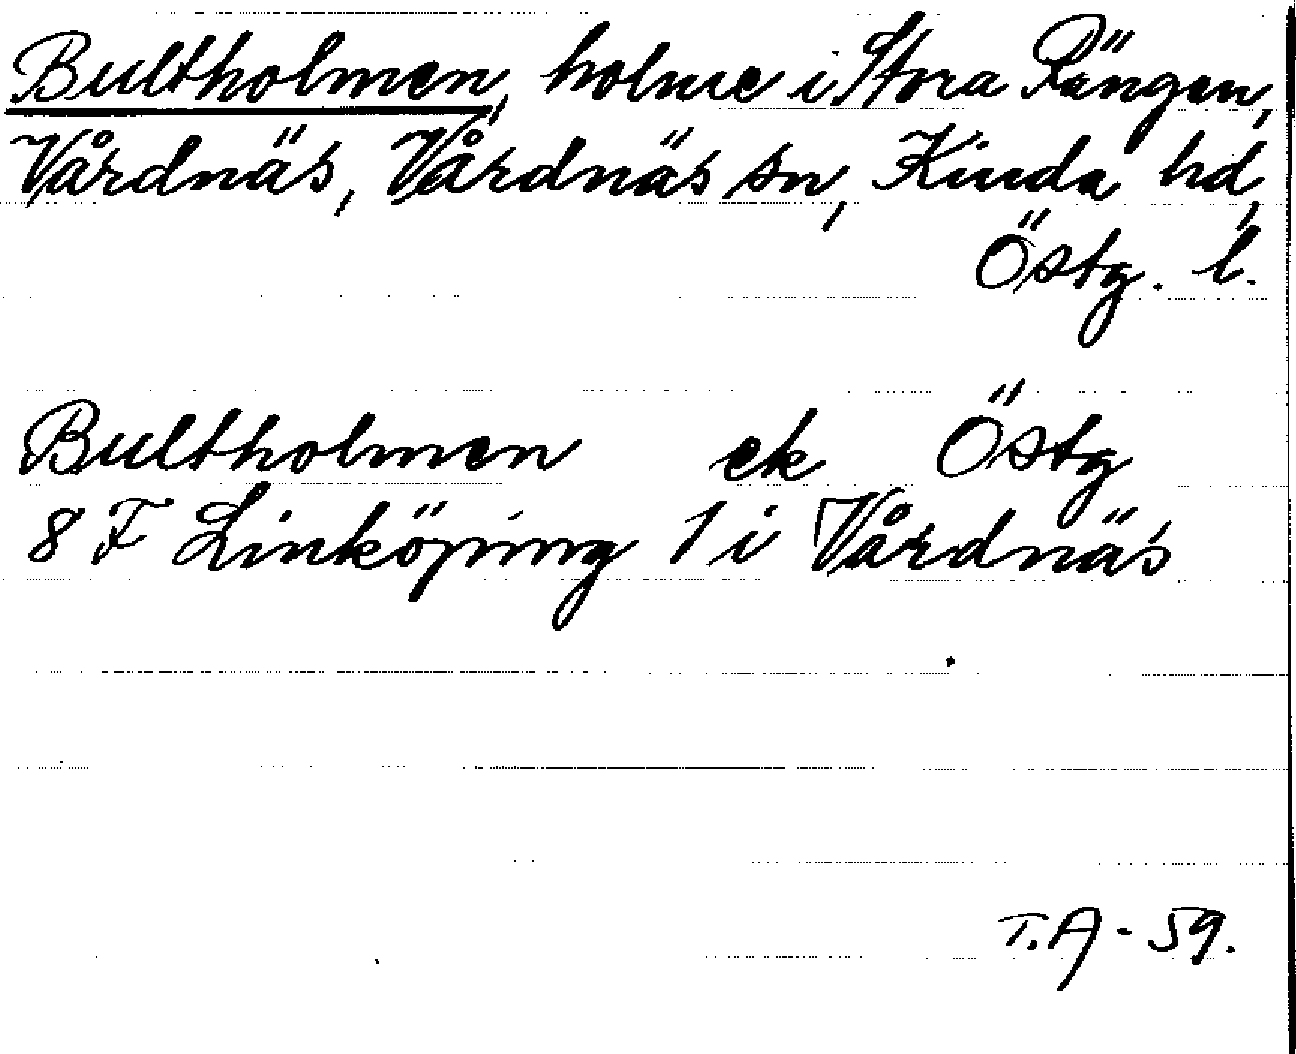 Bultholmen, holme i Stora Rängen,
Vårdnäs, Vårdnäs sn, Kinda hd,
Östg. l.
Bultholmen ek Östg
8 F Linköping 1 i Vårdnäs
T.A - 59.